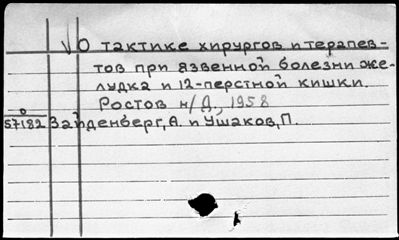 О тактике хирургов и терапев-
тов при язвенной болезни же-
лудка и 12-перстной кишки.
Ростов н/Д., 1958
0
57182 Зайденберг, А. и Ушаков, П.